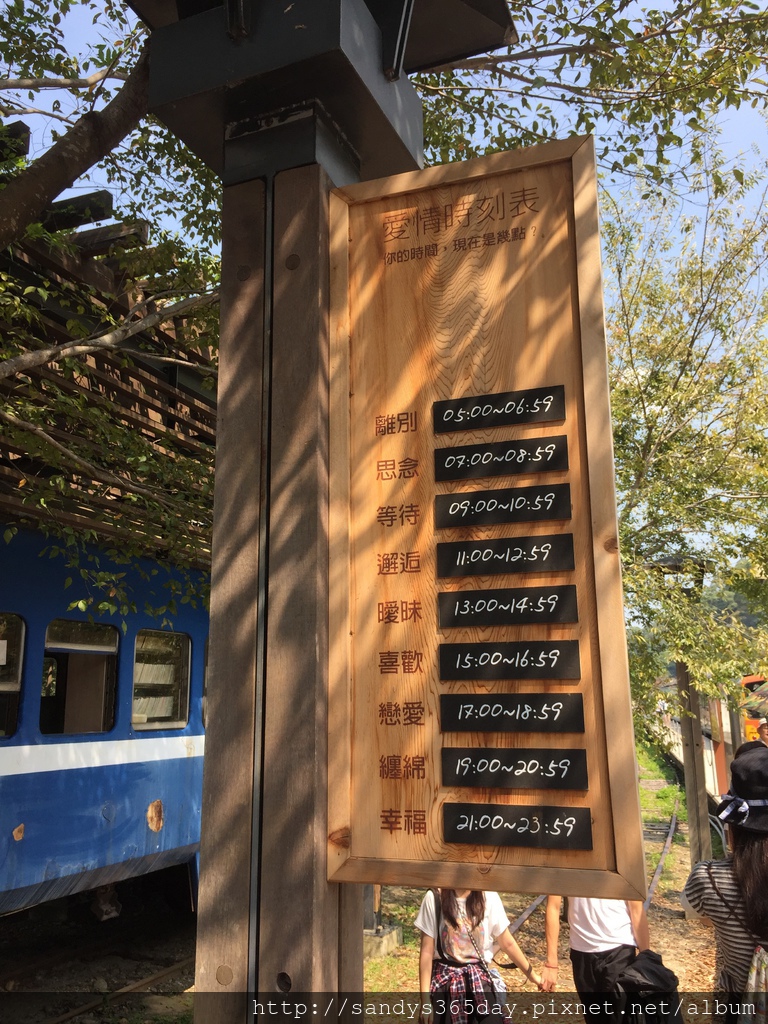 愛情時刻表
你的時間，現在是幾點？
離別 05:00~06:59
思念 07:00~08:59
等待 09:00~10:59
邂逅 11:00~12:59
曖昧 13:00~14:59
喜歡 15:00~16:59
戀愛 17:00~18:59
纏綿 19:00~20:59
幸福 21:00~23:59
http://sandys365day.pixnet.net/album